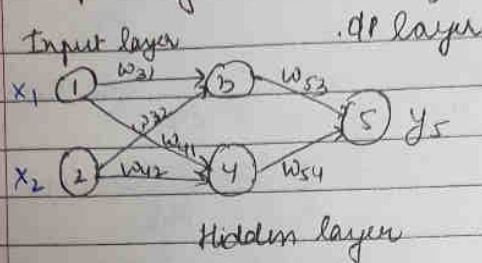 Input layer
.o/p layer
x1 1 w31 3 w53
w32
5 y5
w41
x2 2 w42 4 w54
Hidden layer